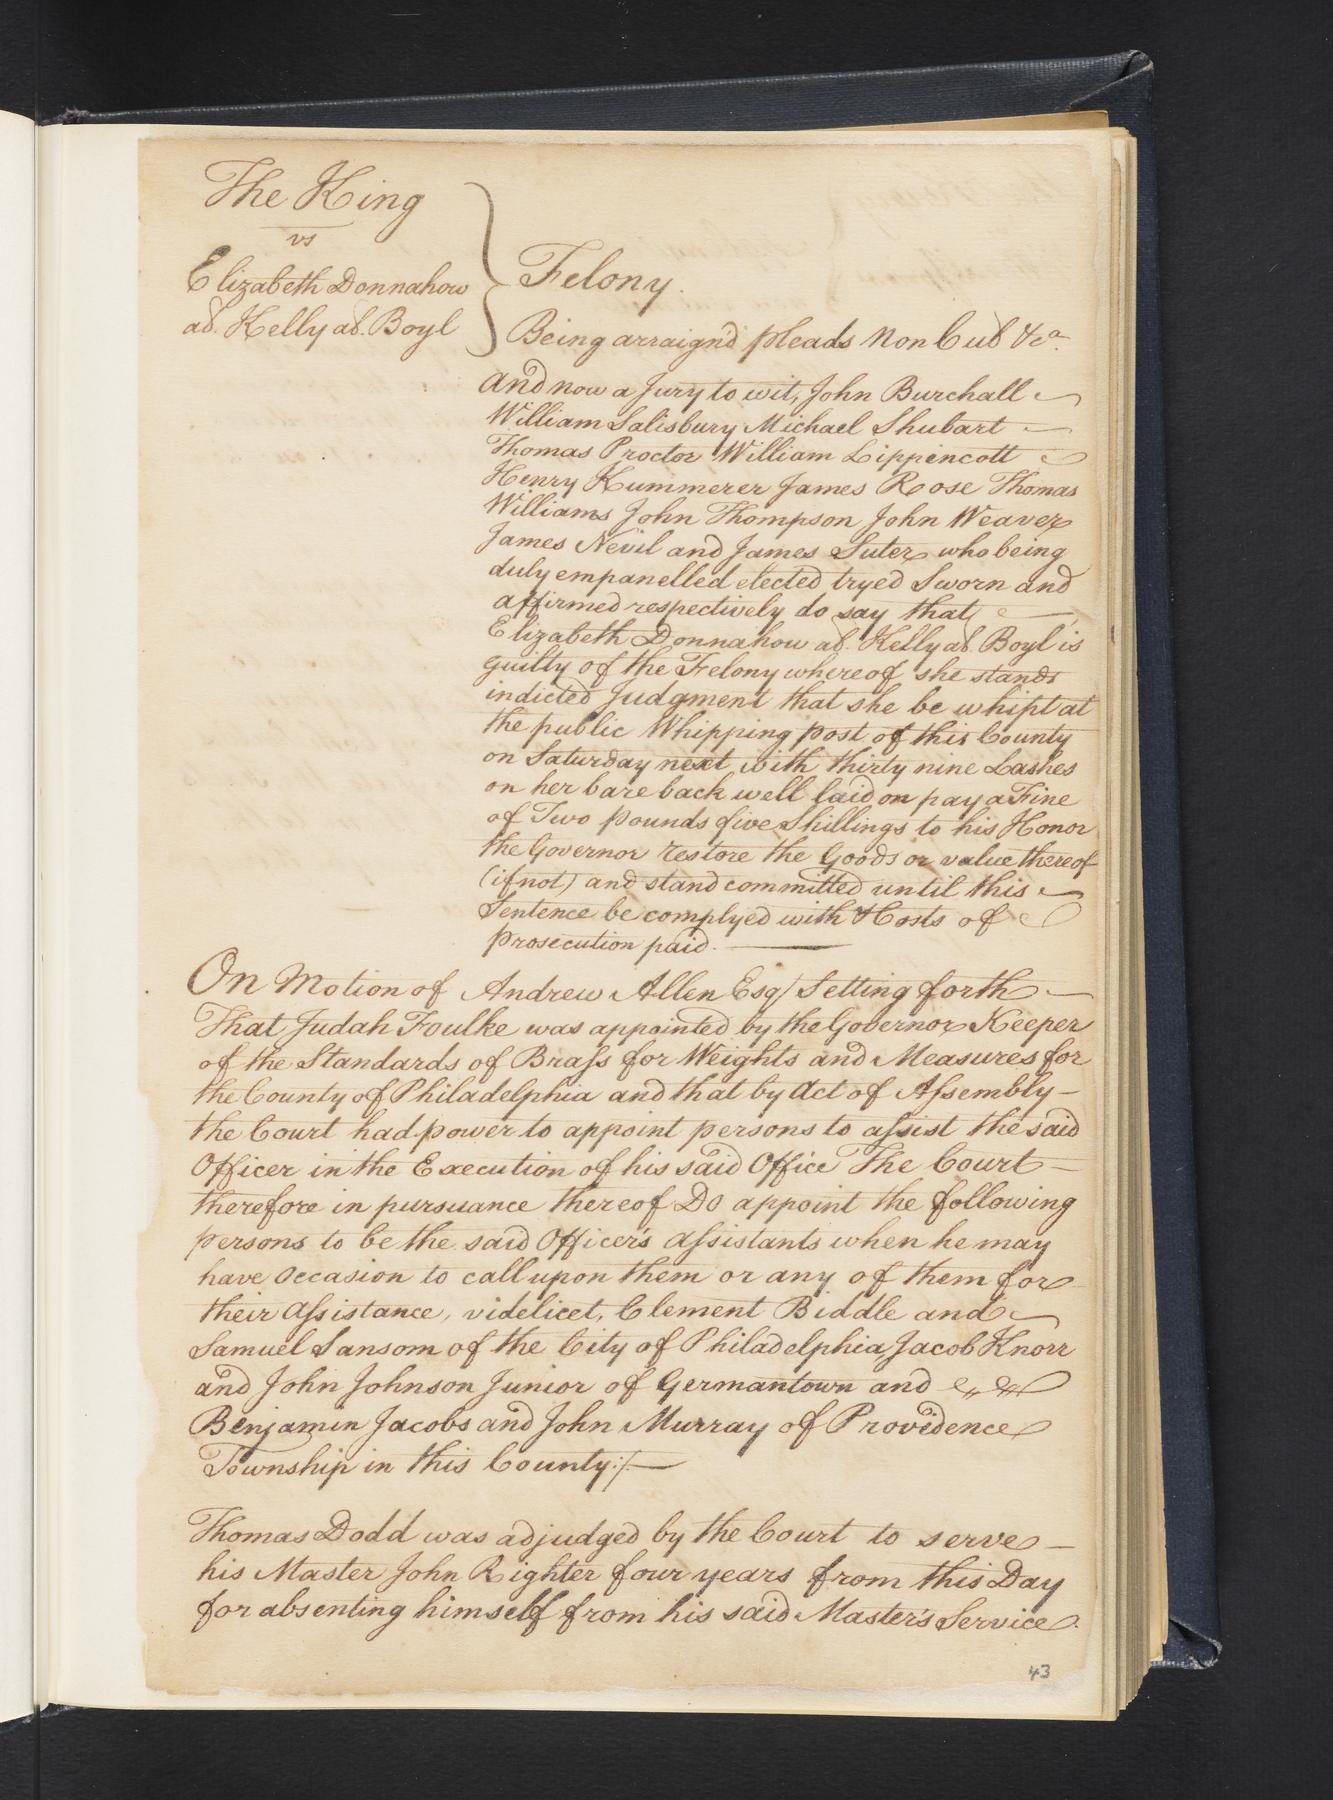 The King
vs
Elizabeth Donnahow
al. Kelly al. Boyl
Felony.
Being arraign'd pleads Non Cul &ca.
and now a Jury to wit, John Burchall
William Salisbury Michael Shubart
Thomas Proctor William Lippencott
Henry Kummerer James Rose Thomas
Williams John Thompson John Weaver
James Nevil and James Suter who being
duly empanelled elected tryed Sworn and
affirmed respectively do say that
Elizabeth Donnahow al. Kelly al. Boyl is
guilty of the Felony whereof she stands
indicted Judgment that she be whipt at
the public Whipping post of this County
on Saturday next with thirty nine Lashes
on her bare back well laid on pay a Fine
of Two pounds five Shillings to his Honor
the Governor restore the Goods or value thereof
(if not) and stand committed until this
Sentence be complyed with & Costs of
prosecution paid.
On Motion of Andrew Allen Esq/ Setting forth
That Judah Foulke was appointed by the Governor Keeper
of the Standards of Braſs for Weights and Measures for
the County of Philadelphia and that by Act of Aſsembly
the Court had power to appoint persons to aſsist the said
Officer in the Execution of his said Office The Court
therefore in pursuance thereof Do appoint the following
persons to be the said Officer's Aſsistants when he may
have Occasion to call upon them or any of them for
their Aſsistance, videlicet, Clement Biddle and
Samuel Sansom of the City of Philadelphia Jacob Knorr
and John Johnson Junior of Germantown and
Benjamin Jacobs and John Murray of Providence
Township in this County:/.
Thomas Dodd was adjudged by the Court to serve
his Master John Righter four years from this Day
for absenting himself from his said Master's Service.
43